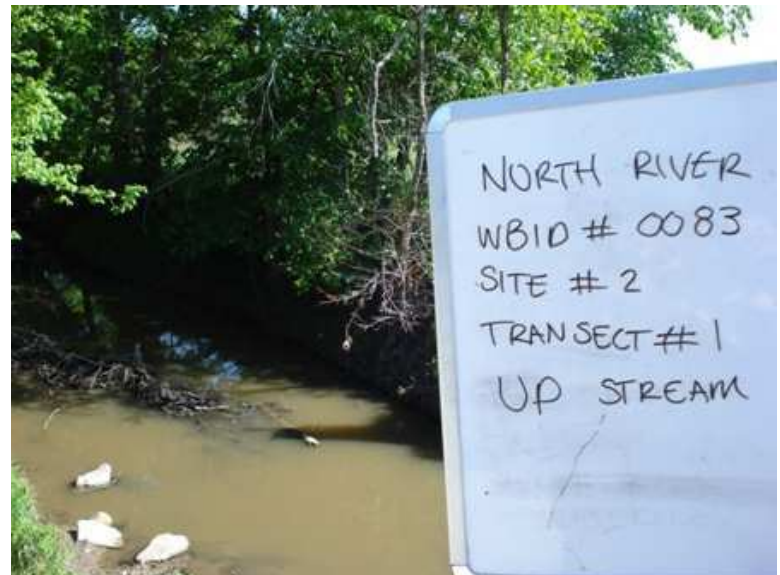 NORTH RIVER
WBID # 0083
SITE # 2
TRANSECT # 1
UP STREAM